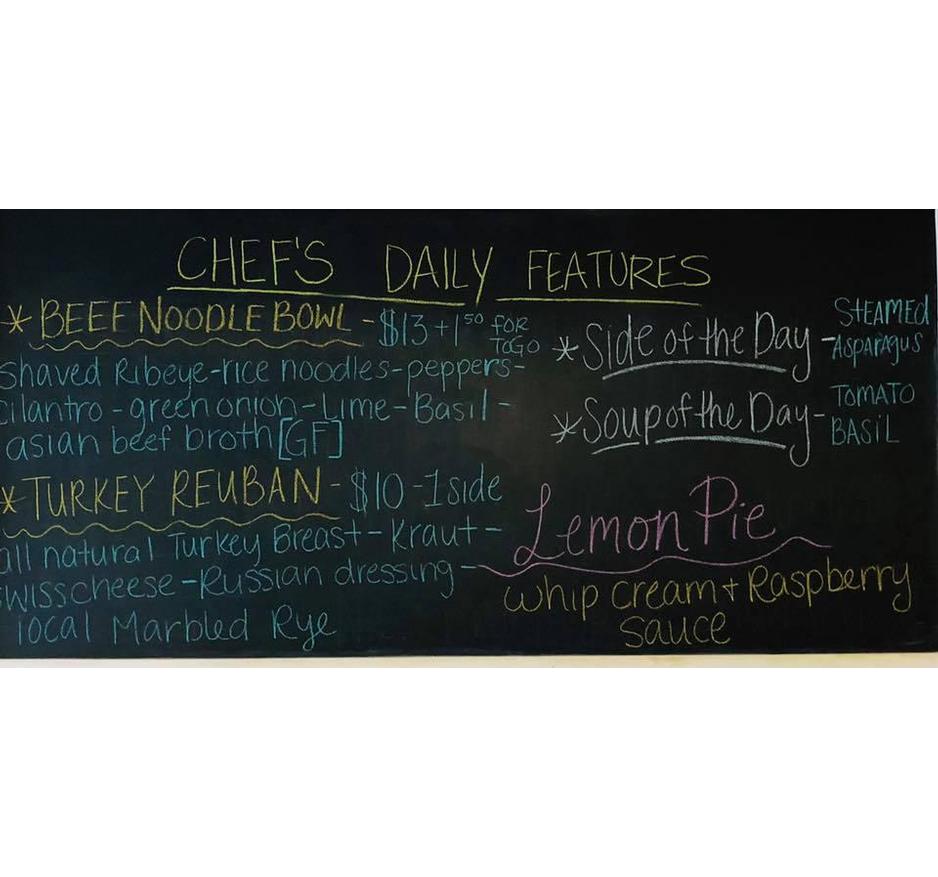 CHEF'S DAILY FEATURES
* BEEF NOODLE BOWL - $13 + 1⁵⁰ FOR TOGO
shaved Ribeye-rice noodles-peppers-
cilantro - green onion - Lime - Basil -
asian beef broth [GF]
* TURKEY REUBAN - $10 - 1 side
all natural Turkey Breast - Kraut -
swisscheese - Russian dressing -
local Marbled Rye
* Side of the Day - STEAMED
ASPARAGUS
* Soup of the Day - TOMATO
BASIL
Lemon Pie
whip cream + Raspberry
sauce